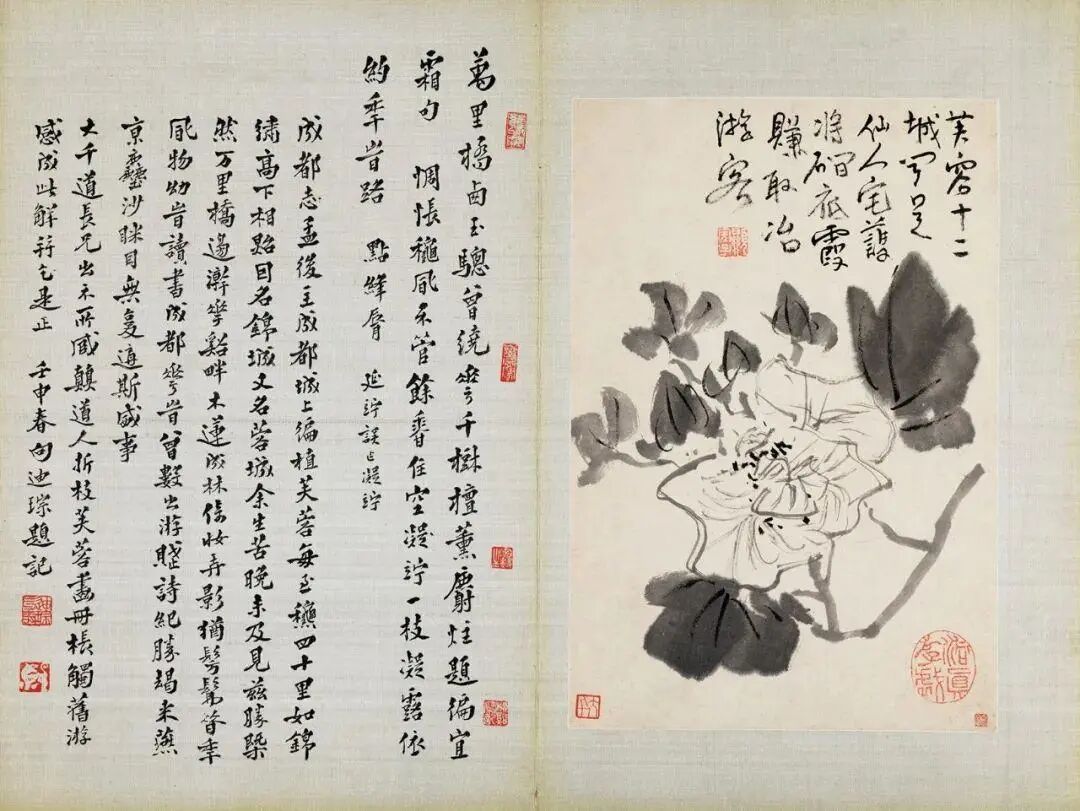 芙蓉十二
城是
仙人宅
將硯底霞
賺取冶
游客
萬里橋卤玉驄曾繞花千樹檀薰麝炷題徧宜
霜句 惆悵穐風不管餘香住空凝竚一枝凝露依
約季旹路 點絳脣 延竚誤凝竚
成都志孟後主成都城上徧植芙蓉每至穐四十里如錦
繡高下相照因名錦城又名蓉城余生苦晚未及見茲勝槩
然万里橋邊澣花谿畔木蓮成林倚妝弄影猶髣髴昔年
風物幼旹讀書成都花旹曾數出游賦詩紀勝朅来燕
京塵沙眯目無复斯盛事
大千道長兄出示所臧顛道人折枝芙蓉畫冊棖觸舊游
感成此解并乞是正 壬申春向迪琮題記